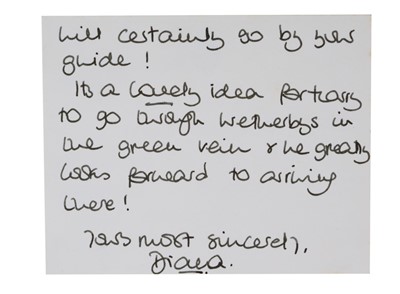 will certainly go by your
guide!
Its a lovely idea for Harry
to go through Wetherbys in
the green vein & he greatly
looks forward to arriving
there!
Yours most sincerely,
Diana.